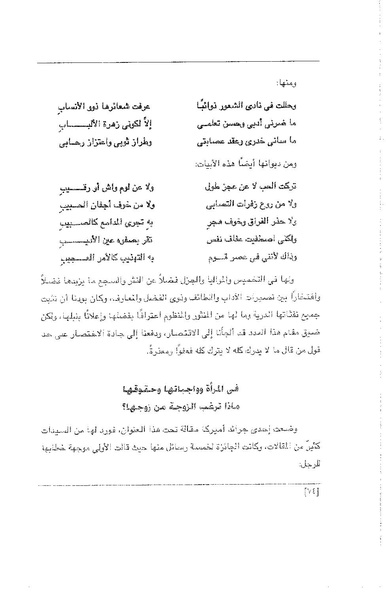 ومنها:
وحللت فى نادى الشعور ذوائبًا عرفت شعائرها ذوو الأنساب
ما ضرنى أدبى وحسن تعلمى إلاَّ لكونى زهرة الألبـــــاب
ما سائنى خدرى وعقد عصابتى وطراز ثوبى واعتزاز رحابى
ومن ديوانها أيضًا هذه الأبيات:
تركت الحب لا عن عجز طولى ولا عن لوم واش أو رقـــيب
ولا من روع زفرات التصابى ولا من خوف أجفان الحـبيب
ولا حذر الفراق وخوف هجر به تجرى المدامع كالصـبيب
ولكنى اصطفيت عفاف نفس تقر بصفوه عين الأديـــب
وذاك لأننى فى عصر قـــوم به التهذيب كالأمر العـــجيب
ولها فى التخميس والمواليا والزجل فضلاً عن النثر والسجع ما يزيدها فضلاً
وافتخارًا بين نصيرات الآداب واللطائف وذوى الفضل والمعارف، وكان بودنا أن نثبت
جميع نفثاتها الدرية وما لها من المنثور والمنظوم اعترافًا بفضلها وإعلانًا بنبلها، ولكن
ضيق مقام هذا العدد قد ألجأنا إلى الاقتصار، ودفعنا إلى جادة الاختصار على حد
قول من قال ما لا يدرك كله لا يترك كله فعفوًا ومعذرةً.
فى المرأة وواجباتها وحقوقها
ماذا ترغب الزوجة من زوجها؟
وضعت إحدى جرائد أميركا مقالة تحت هذا العنوان، فورد لها من السيدات
كثيرٌ من المقالات، وكانت الجائزة لخمسة رسائل منها حيث قالت الأولى موجهة خطابها
للرجل:
[٧٤]